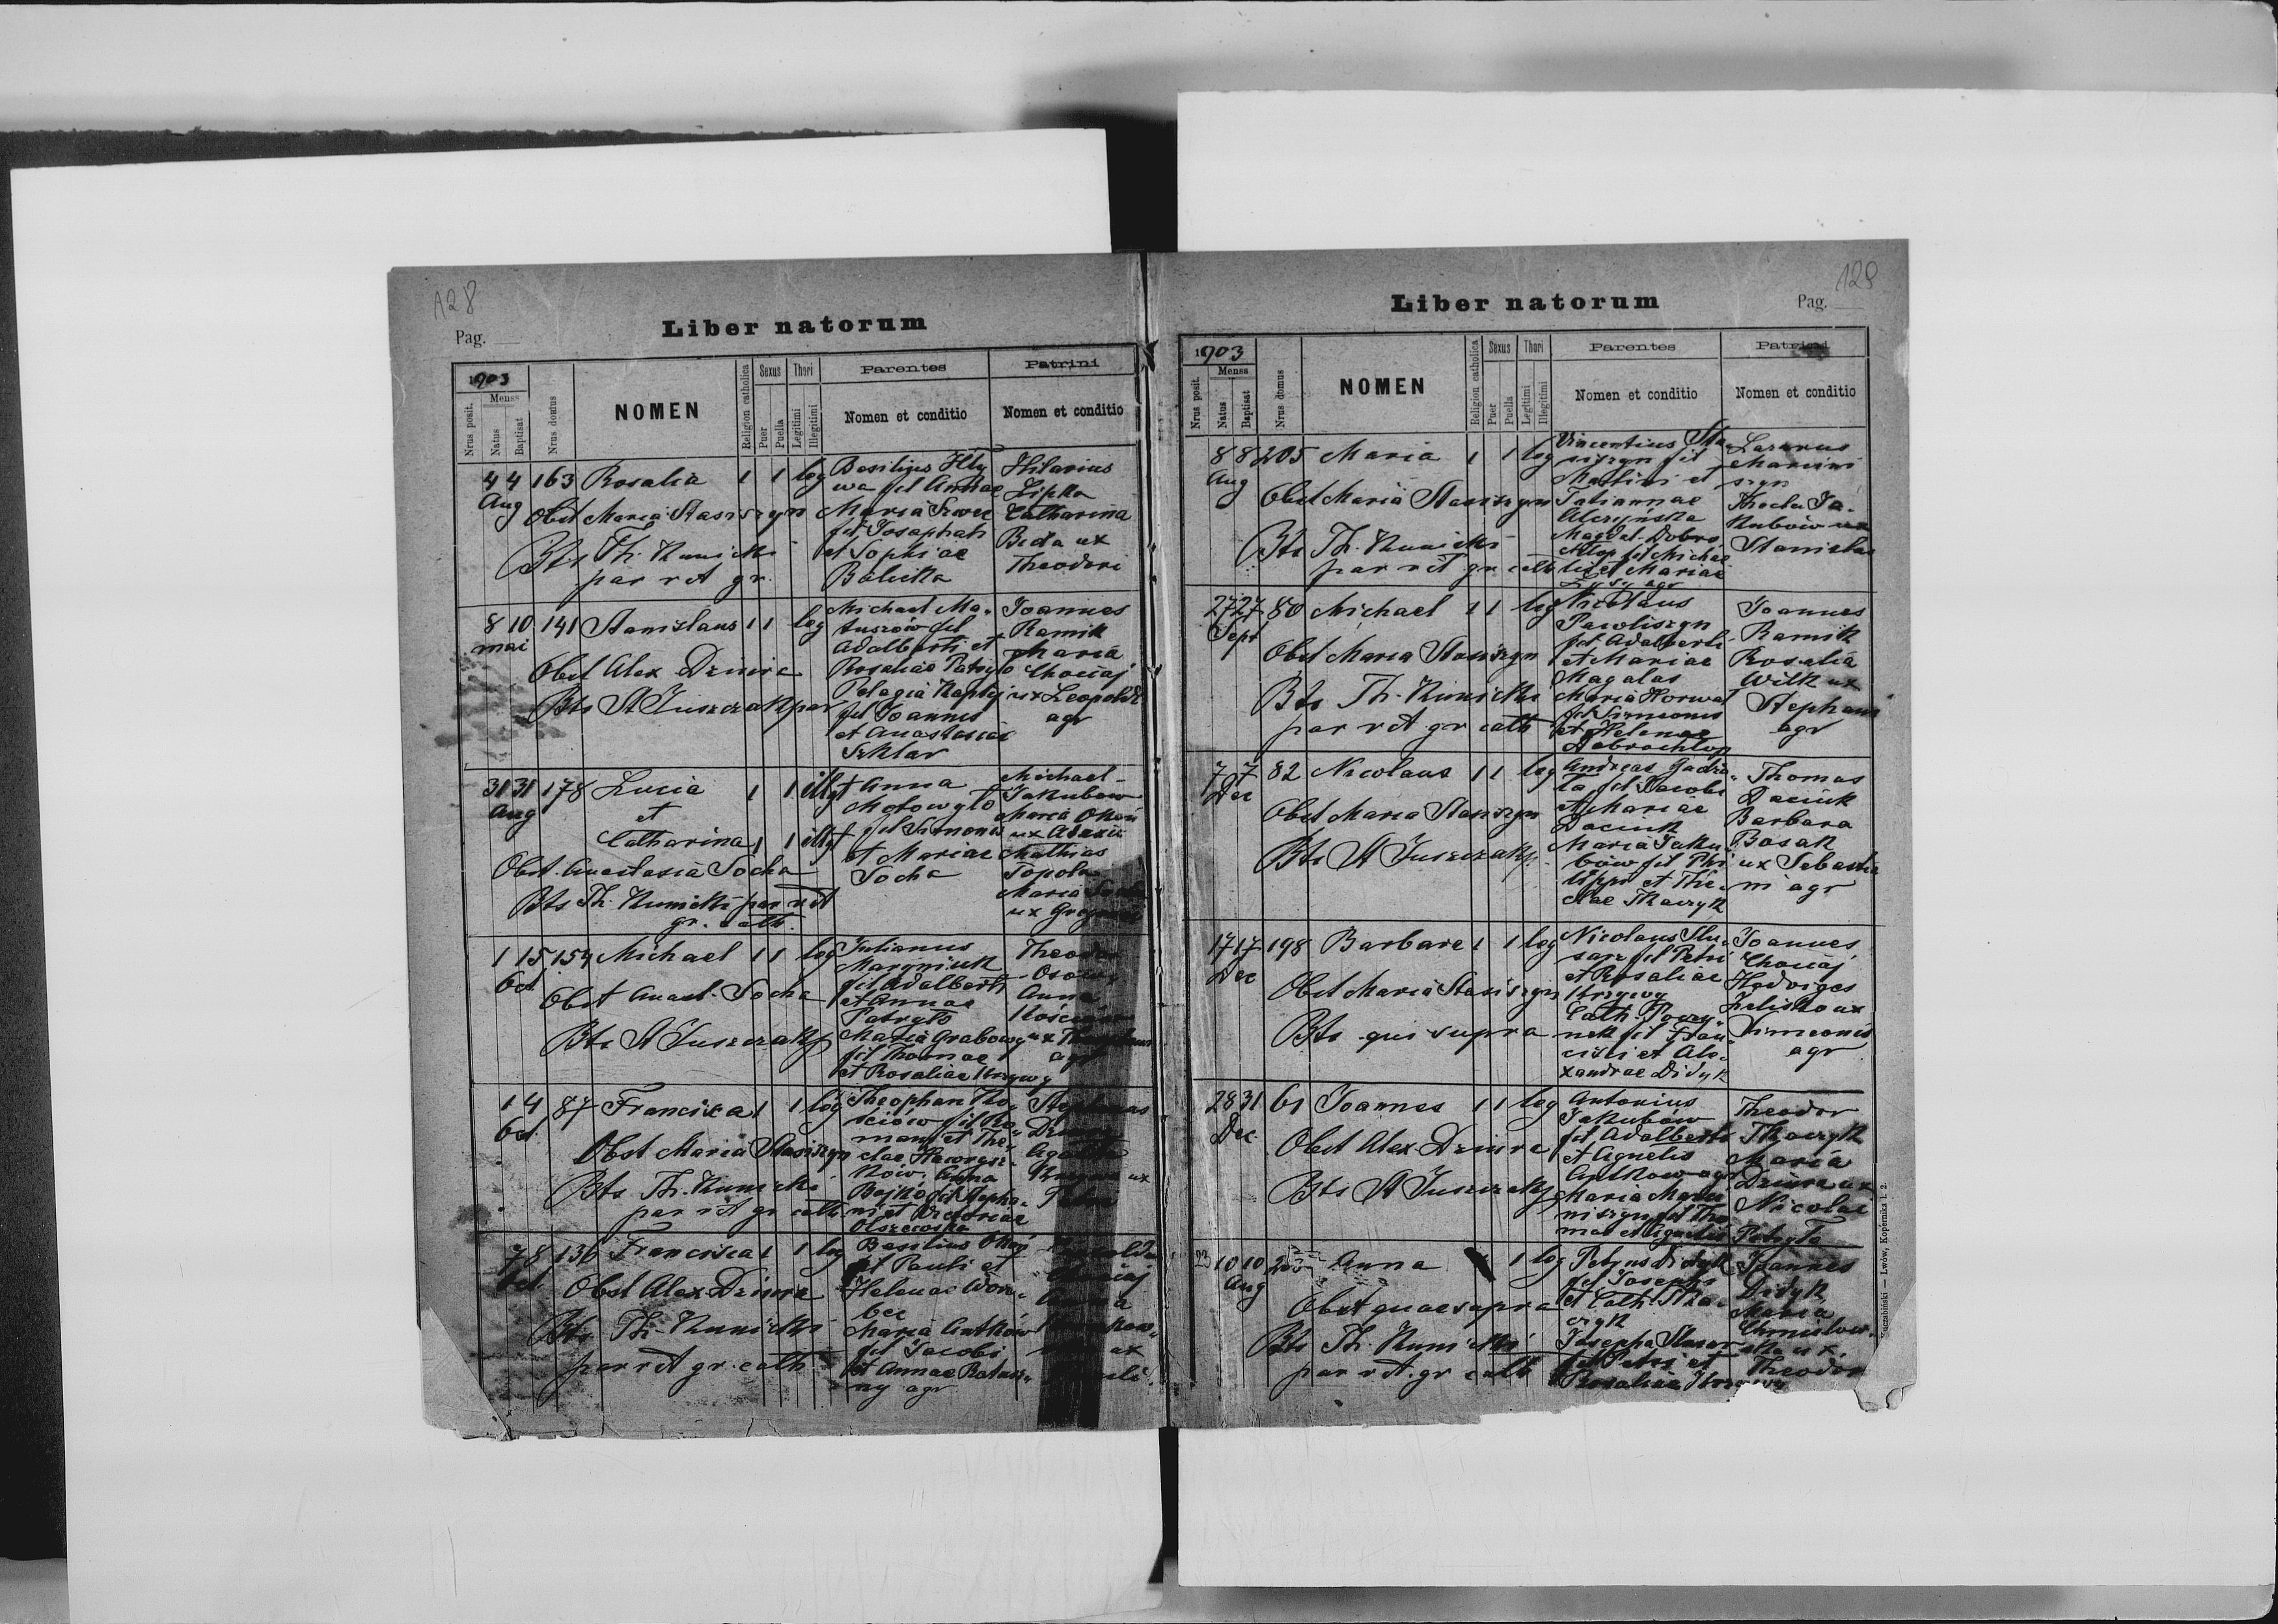 A28
Pag.
Liber natorum
1903
Nrus. posit.
Menss
Natus
Baptisat
Nrus domus
NOMEN
Religion catholica
Sexus
Puer
Puella
Thori
Legitimi
Illegitimi
Parentes
Nomen et conditio
Patrini
Nomen et conditio
4 4 163 Rosalia 1 1 leg
Aug
Obst Maria Stasiszyn
Bts Th. Kunicki
par rit gr.
Basilius Hły
wa fil Annae
Maria Szwec
fil Josaphati
et Sophiae
Balicka
Hilarius
Lipka
Catharina
Beda ux
Theodori
8 10 141 Stanislaus 1 1 leg
mai
Obst Alex Dziura
Bts St Juszczak par
Michael Ma-
tuszów fil
Adalberti et
Rosaliae Patryło
Pelagia Kaptij
fil Joannis
et Anastasiae
Szklar
Joannes
Ramik
Maria
Chociaj
ux Leopoldi
agr
31 31 178 Lucia 1 1 illgt
Aug
et
Catharina 1 1 illgt
Obst. Anastasia Socha
Bts Th. Kunicki par rit
gr. cath.
Anna
Motowyło
fil Simonis
et Mariae
Socha
Michael
Jakubow
Maria Okoń
ux
Mathias
Topola
Maria
ux
1 15 154 Michael 1 1 leg
Oct
Obst Anast. Socha
Bts St Juszczak p
Julianus
Maryniuk
fil Adalberti
et Annae
Patryło
Maria Grabowy
fil Thomae
et Rosaliae Krzywy
Theodor
Osowy
Anna
ux
agr
1 4 87 Francisca 1 1 leg
Oct.
Obst Maria Stasiszyn
Bts. Th. Kunicki
par rit gr cath.
Theophan Ko-
sciów fil Ro-
mani et The-
clae Hawrysz-
ków, Anna
Bojko fil Stepha-
ni et Victoriae
Olszewska
Stephanus
ux
7 8 136 Francisca 1 1 leg
Oct
Obst Alex Dziura
Bts Th. Kunicki
par rit gr. cath.
Basilius Okoń
fil Pauli et
Helenae Won-
bec
Maria Antków
fil Jacobi
et Annae Ratusz-
ny agr
ux
128
Liber natorum
Pag.
1903
Nrus. posit.
Menss
Natus
Baptisat
Nrus domus
NOMEN
Religion catholica
Sexus
Puer
Puella
Thori
Legitimi
Illegitimi
Parentes
Nomen et conditio
Patrini
Nomen et conditio
8 8 205 Maria 1 1 leg
Aug
Obst Maria Stasiszyn
Bts Th. Kunicki
par rit gr cath
Vincentius Sta-
siszyn fil
Mathiae et
Tatiannae
Magdal. Dobro
chłop fil Michae
lis et Mariae
agr
Lazarus
Marcini
szyn
Thecla Ja-
kubów ux
Stanislai
27 27 80 Michael 1 1 leg
Sept
Obst Maria Stasiszyn
Bts Th. Kunicki
par rit gr cath
Nicolaus
Pawliszyn
fil Adalberti
et Mariae
Magalas
Maria Horwat
fil Simeonis
et Helenae
Dobrochłop
Joannes
Ramik
Rosalia
Wilk ux
Stephani
agr
7 7 82 Nicolaus 1 1 leg
Dec
Obst Maria Stasiszyn
Bts St Juszczak p.
Andreas Gudzi-
ła fil Jacobi
et Mariae
Daciuk
Maria Jaku-
bów fil Phi
lippi et The-
clae Tkaczyk
Thomas
Daciuk
Barbara
Bosak
ux Sebastia
ni agr
17 17 198 Barbara 1 1 leg
Dec
Obst Maria Stasiszyn
Bts qui supra
Nicolaus Slu-
sarz fil Petri
et Rosaliae
Krzywy
nek fil Fran-
cisci et Ale-
xandrae Didyk
Joannes
Chociaj
Hedviges
Zelisko ux
Simeonis
agr
28 31 61 Joannes 1 1 leg
Dec.
Obst Alex Dziura
Bts St Juszczak p
Antonius
Jakubów
fil Adalberti
et Agnetis
Antkow agr
Maria Marci
niszyn fil Tho
mae et Agnetis Patryło
Theodor
Tkaczyk
Maria
Dziura ux
Nicolai
10 10 Anna 1 leg
Aug
Obst quae supra
Bts Th. Kunicki
par rit. gr cath
Petrus Didyk
fil Josephi
et Cath. Tka-
czyk
Josepha Slusar
fil Petri et
Rosaliae Krzywy
Joannes
Didyk
Maria
ska ux
Theodor
Kuczabiński — Lwów, Kopernika l. 2.